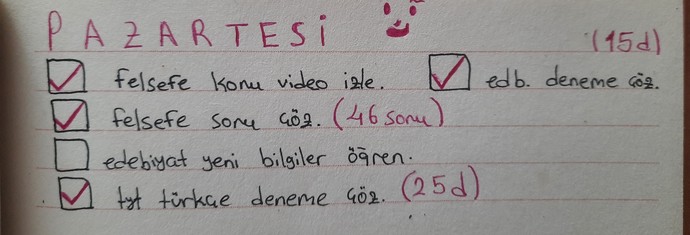 PAZARTESİ
(15d)
felsefe konu video izle. edb. deneme çöz.
felsefe soru çöz. (46 soru)
edebiyat yeni bilgiler öğren.
tyt türkçe deneme çöz. (25d)